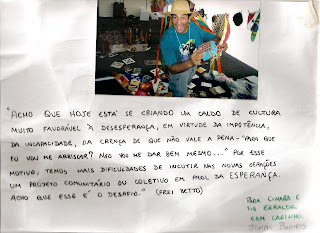 "ACHO QUE HOJE ESTÁ SE CRIANDO UM CALDO DE CULTURA
MUITO FAVORÁVEL À DESESPERANÇA, EM VIRTUDE DA IMPOTÊNCIA,
DA INCAPACIDADE, DA CRENÇA DE QUE NÃO VALE A PENA - "PARA QUE
EU VOU ME ARRISCAR? NÃO VOU ME DAR BEM MESMO..." POR ESSE
MOTIVO, TEMOS MAIS DIFICULDADES DE INCUTIR NAS NOVAS GERAÇÕES
UM PROJETO COMUNITÁRIO OU COLETIVO EM PROL DA ESPERANÇA.
ACHO QUE ESSE É O DESAFIO." (FREI BETTO)
PARA CINARA E
TIO GERALDO,
COM CARINHO.